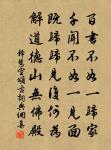 百書不如一歸家
千聞不如一見面
既歸歸見復何為
解道德山無佛殿
釋慧空頌古詞典網集